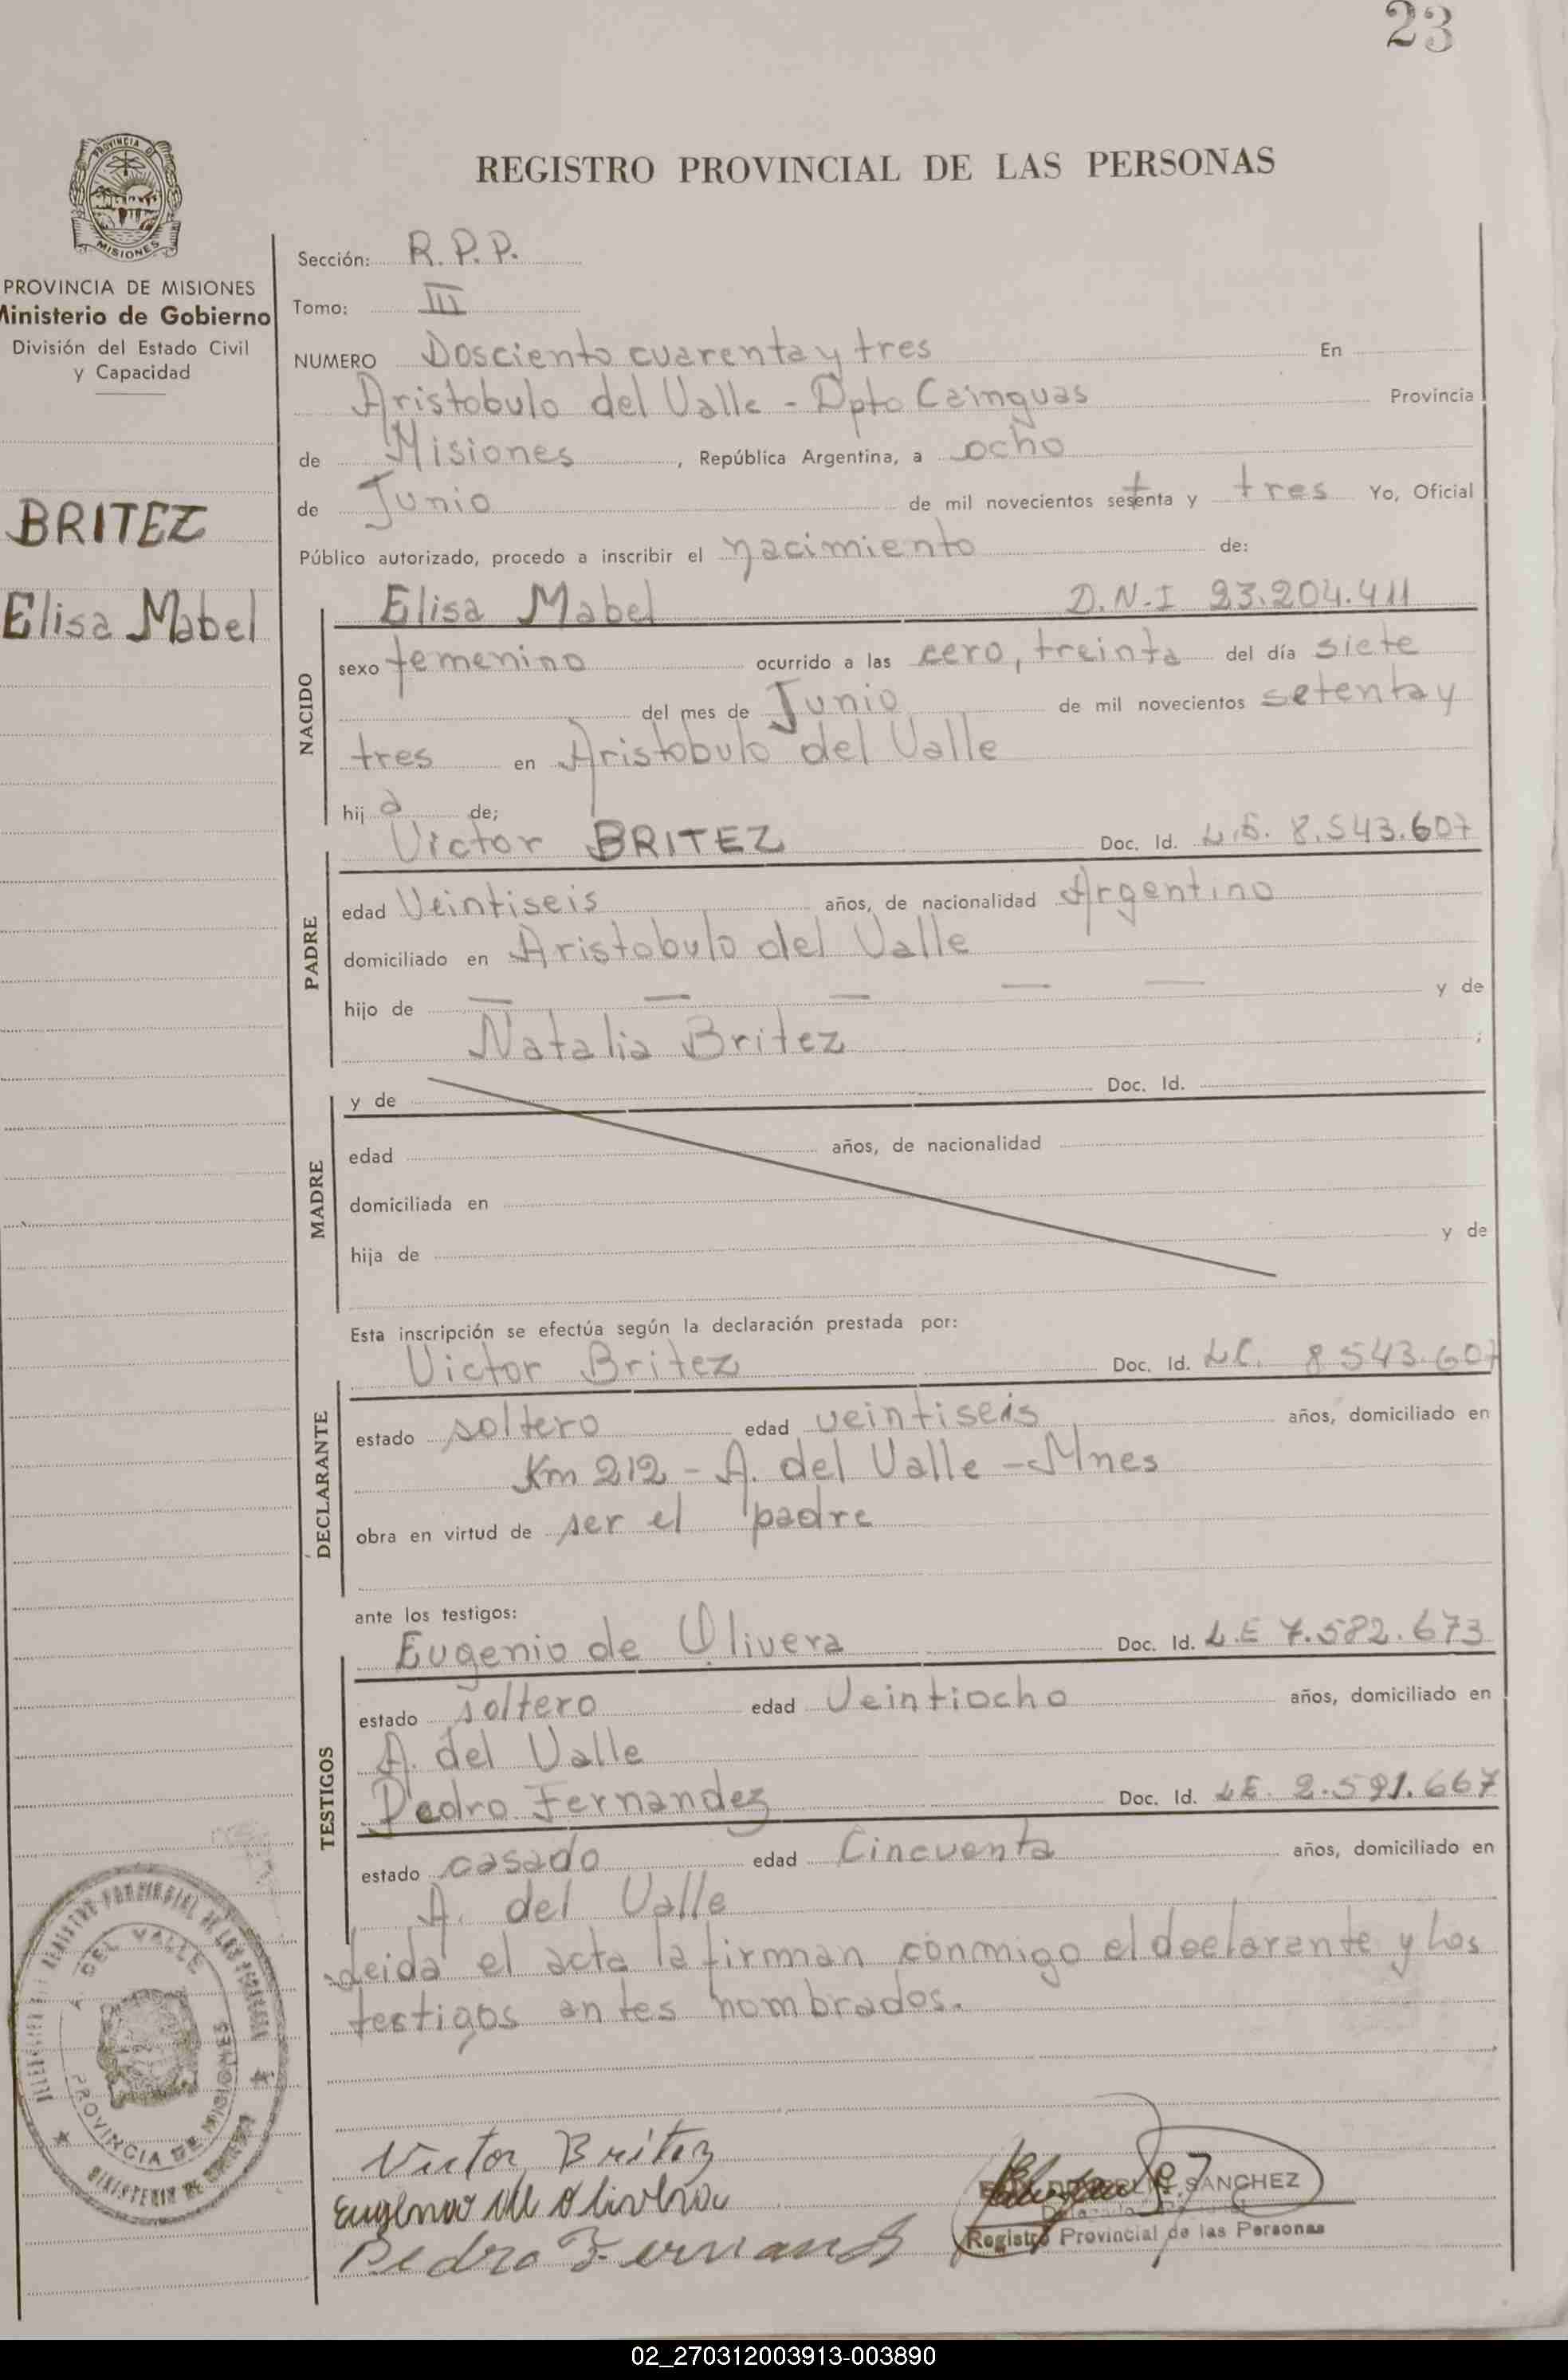 23
REGISTRO PROVINCIAL DE LAS PERSONAS
PROVINCIA DE MISIONES
Ministerio de Gobierno
División del Estado Civil
y Capacidad
BRITEZ
Elisa Mabel
Sección: R.P.P.
Tomo: III
NUMERO Dosciento cuarenta y tres En
Aristobulo del Valle - Dpto Cainguas Provincia
de Misiones, República Argentina, a ocho
de Junio de mil novecientos setenta y tres Yo, Oficial
Público autorizado, procedo a inscribir el nacimiento de:
NACIDO
Elisa Mabel D.N.I 23.204.411
sexo femenino ocurrido a las cero, treinta del día siete
del mes de Junio de mil novecientos setenta y
tres en Aristobulo del Valle
hij a de;
PADRE
Victor BRITEZ Doc. Id. L.E. 8.543.607
edad Veintiseis años, de nacionalidad Argentino
domiciliado en Aristobulo del Valle
hijo de — — — — — y de
Natalia Britez ;
MADRE
y de Doc. Id.
edad años, de nacionalidad
domiciliada en
hija de y de
Esta inscripción se efectúa según la declaración prestada por:
DECLARANTE
Victor Britez Doc. Id. L.E. 8 543.607
estado soltero edad veintiseis años, domiciliado en
Km 212 - A. del Valle - Mnes
obra en virtud de ser el padre
ante los testigos:
TESTIGOS
Eugenio de Olivera Doc. Id. L.E 7.582.673
estado soltero edad Veintiocho años, domiciliado en
A. del Valle
Pedro Fernandez Doc. Id. LE. 2.591.667
estado casado edad Cincuenta años, domiciliado en
A. del Valle
Leida el acta la firman conmigo el declarante y los
testigos antes nombrados.
Victor Britez
Eugenio de Olivera
Pedro Fernand
SANCHEZ
Registro Provincial de las Personas
A. DEL VALLE
PROVINCIA DE MISIONES
02_270312003913-003890